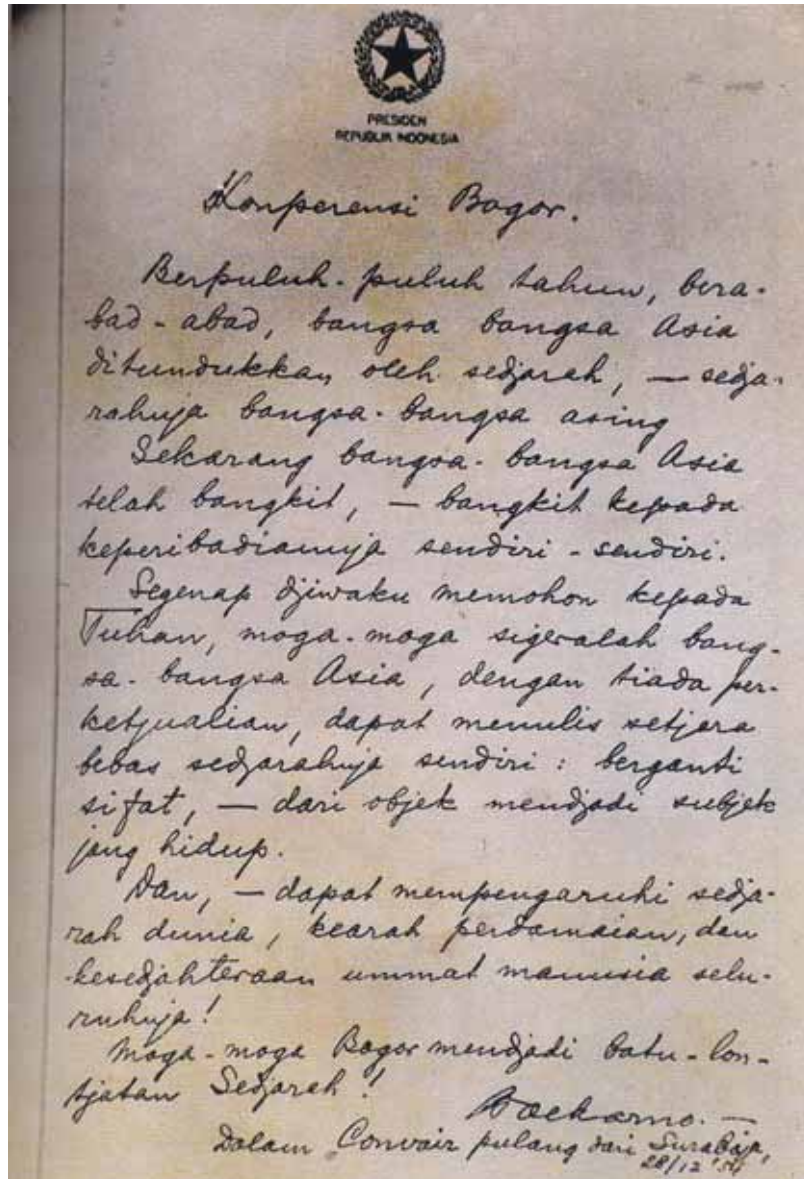 PRESIDEN
REPUBLIK INDONESIA
Konperensi Bogor.
Berpuluh-puluh tahun, bera-
bad-abad, bangsa bangsa Asia
ditundukkan oleh sedjarah, — sedja-
rahnja bangsa-bangsa asing
Sekarang bangsa-bangsa Asia
telah bangkit, — bangkit kepada
keperibadiannja sendiri-sendiri.
Segenap djiwaku memohon kepada
Tuhan, moga-moga sigeralah bang-
sa-bangsa Asia, dengan tiada per-
ketjualian, dapat menulis setjara
bebas sedjarahnja sendiri: berganti
sifat, — dari objek mendjadi subjek
jang hidup.
Dan, — dapat mempengaruhi sedja-
rah dunia, kearah perdamaian, dan
kesedjahteraan ummat manusia selu-
ruhnja!
Moga-moga Bogor mendjadi batu-lon-
tjatan Sedjarah!
Soekarno. —
Dalam Convair pulang dari Surabaja,
28/12 '54